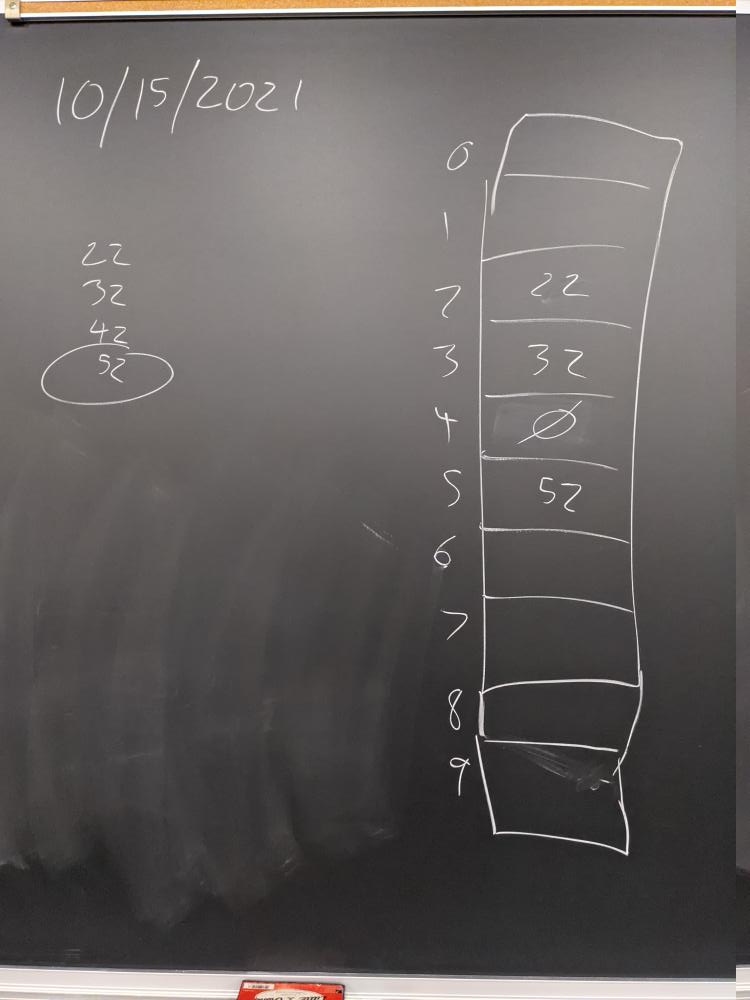 10/15/2021
22
32
42
52
0
1
2 22
3 32
4 Ø
5 52
6
7
8
9